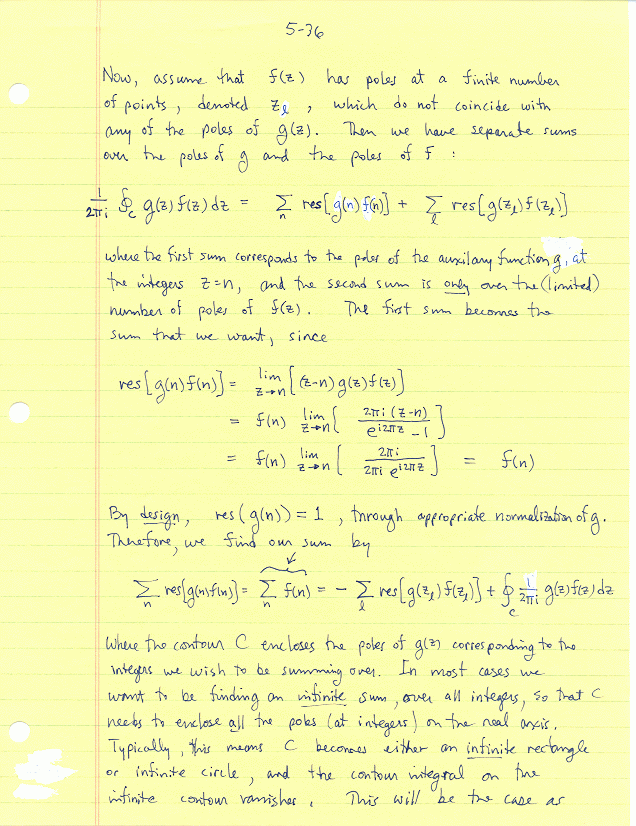 5-36
Now, assume that f(z) has poles at a finite number
of points, denoted z_ℓ, which do not coincide with
any of the poles of g(z). Then we have separate sums
over the poles of g and the poles of f :
1/2πi ∮_C g(z) f(z) dz = Σ_n res[g(n) f(n)] + Σ_ℓ res[g(z_ℓ) f(z_ℓ)]
where the first sum corresponds to the poles of the auxilary function g, at
the integers z=n, and the second sum is only over the (limited)
number of poles of f(z). The first sum becomes the
sum that we want, since
res[g(n) f(n)] = lim_{z→n} [(z-n) g(z) f(z)]
= f(n) lim_{z→n} [ 2πi (z-n) / (e^{i2πz} - 1) ]
= f(n) lim_{z→n} [ 2πi / (2πi e^{i2πz}) ] = f(n)
By design, res(g(n)) = 1, through appropriate normalization of g.
Therefore, we find our sum by
Σ_n res[g(n) f(n)] = Σ_n f(n) = - Σ_ℓ res[g(z_ℓ) f(z_ℓ)] + ∮_C 1/2πi g(z) f(z) dz
where the contour C encloses the poles of g(z) corresponding to the
integers we wish to be summing over. In most cases we
want to be finding an infinite sum, over all integers, so that C
needs to enclose all the poles (at integers) on the real axis.
Typically, this means C becomes either an infinite rectangle
or infinite circle, and the contour integral on the
infinite contour vanishes. This will be the case as